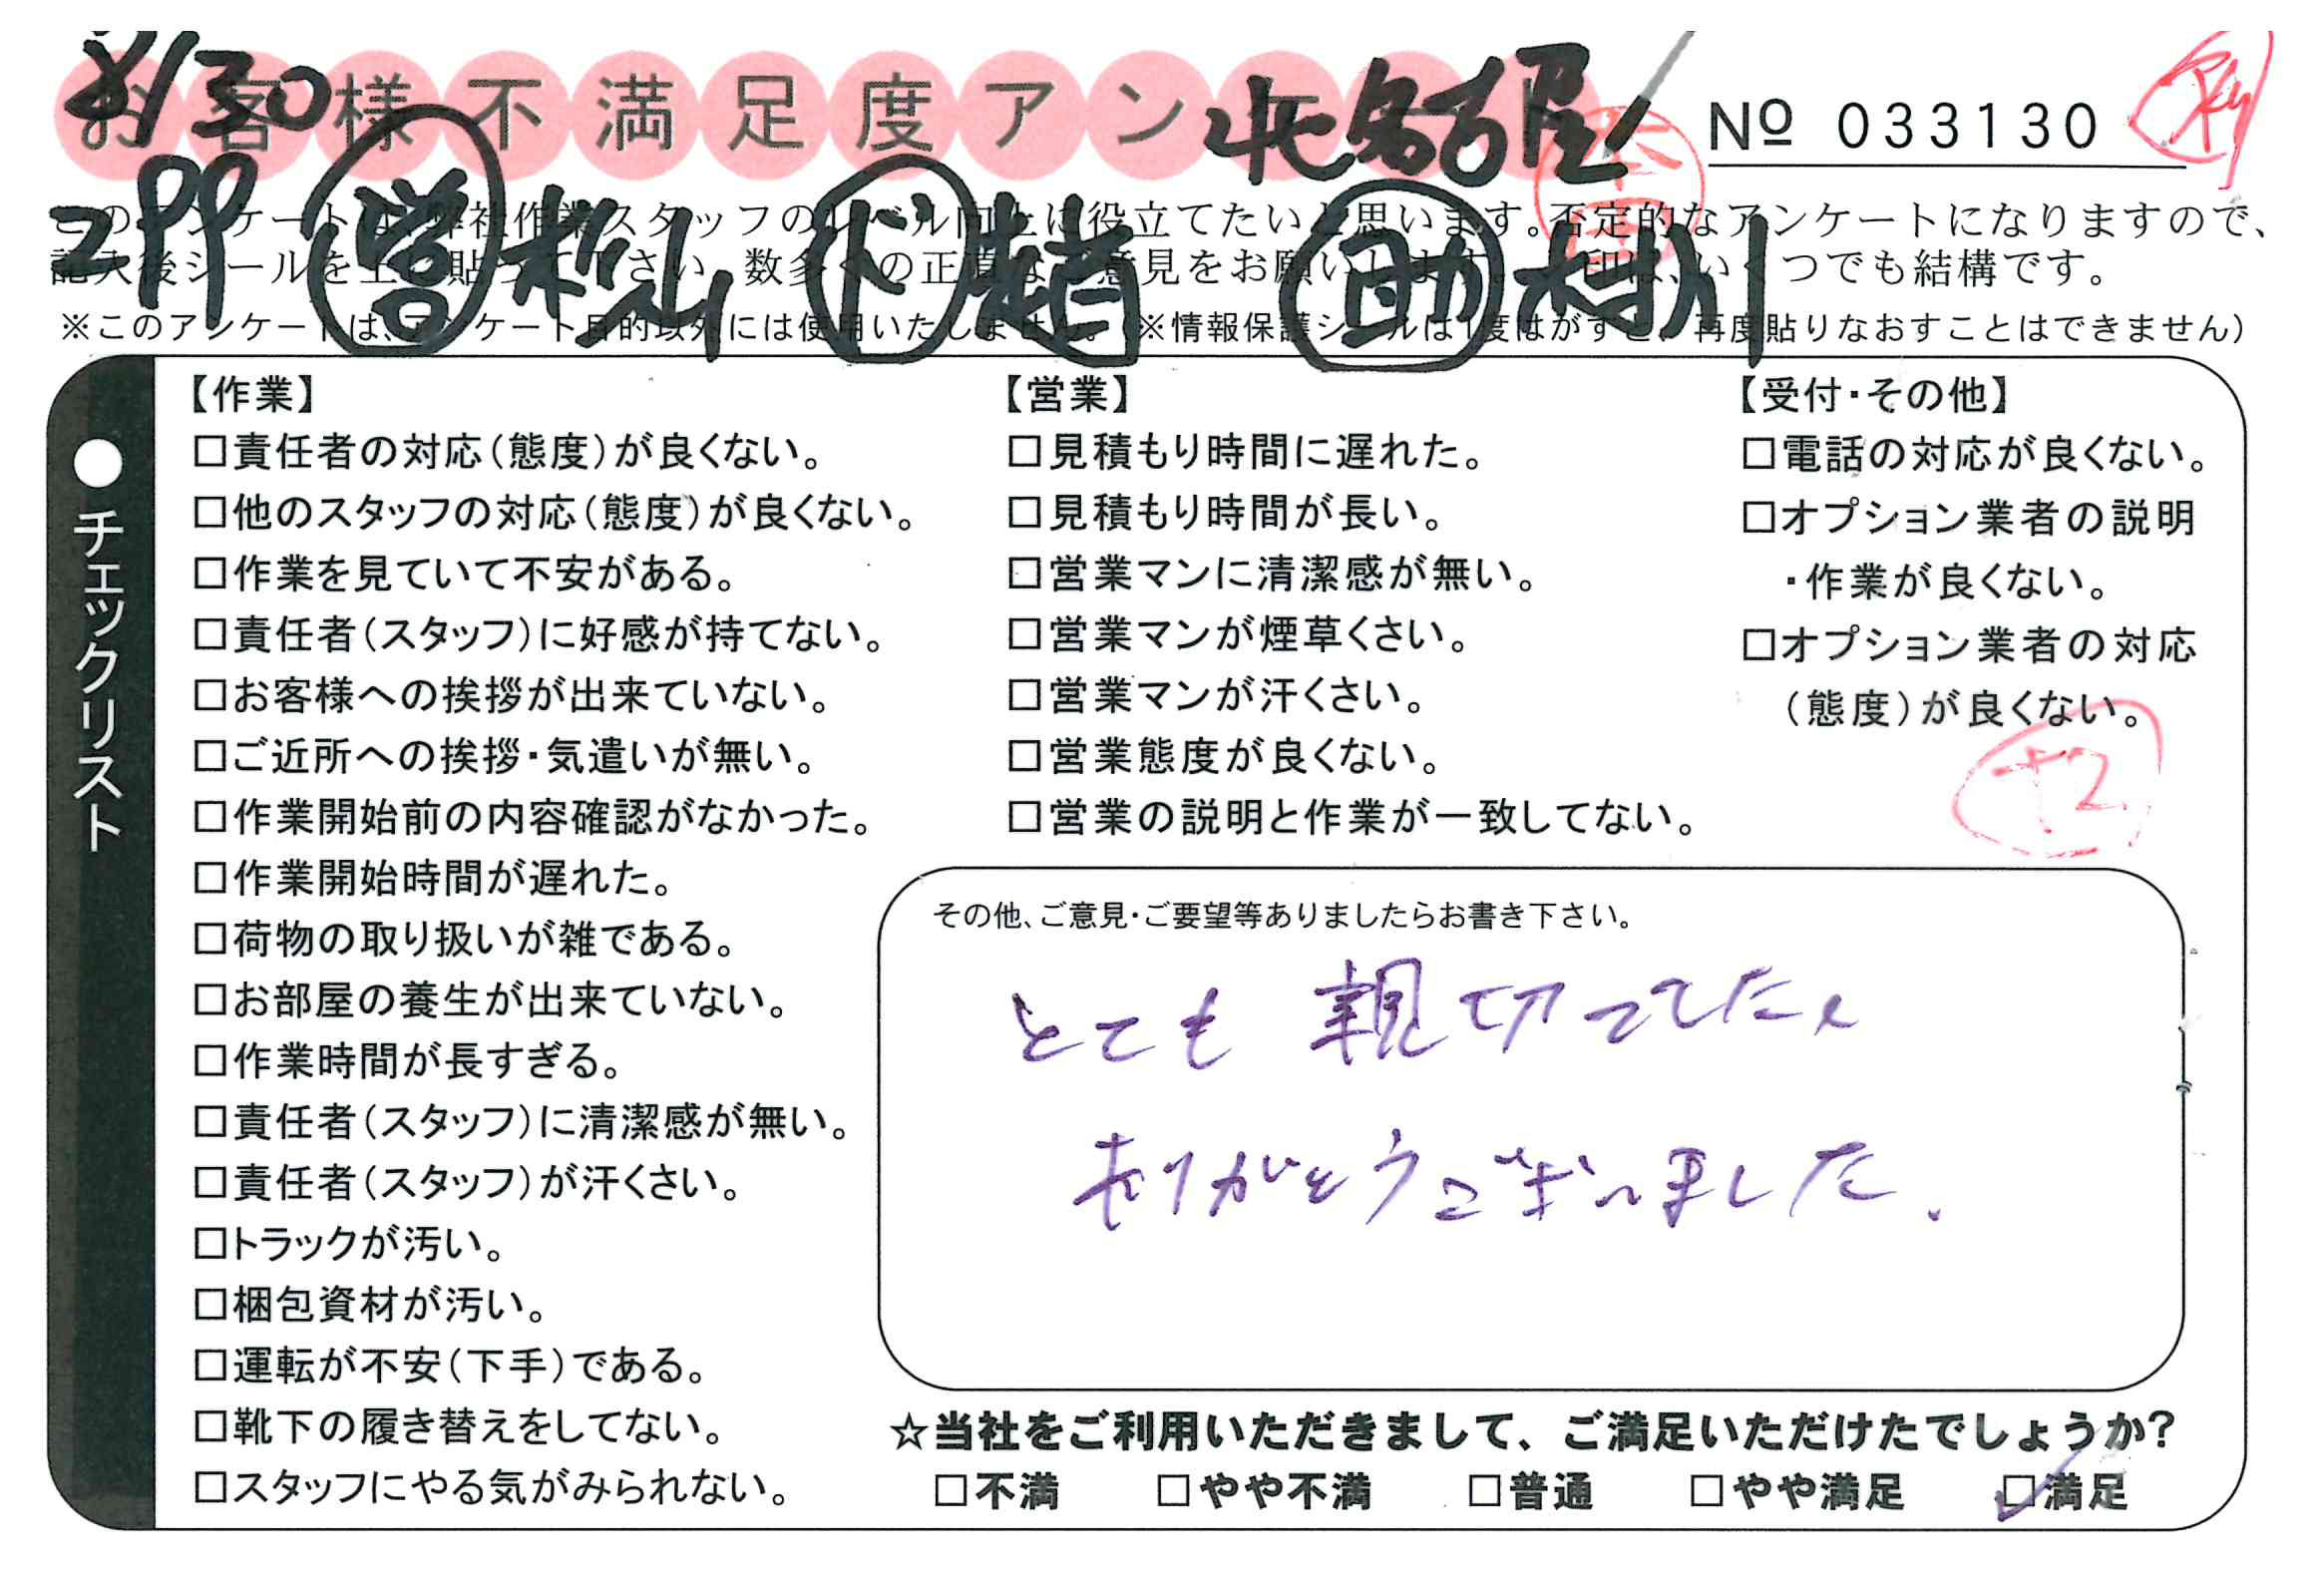 お客様不満足度アンケート
8/30
北名古屋
№ 033130
2PP 営 松山 ド 趙 助 木村川
このアンケートは、弊社作業スタッフのレベル向上に役立てたいと思います。否定的なアンケートになりますので、
記入後シールを上に貼って下さい。数多くの正直なご意見をお願いします。 は、いくつでも結構です。
※このアンケートは、アンケート目的以外には使用いたしません。(※情報保護シールは1度はがすと、再度貼りなおすことはできません)
●チェックリスト
【作業】
□責任者の対応(態度)が良くない。
□他のスタッフの対応(態度)が良くない。
□作業を見ていて不安がある。
□責任者(スタッフ)に好感が持てない。
□お客様への挨拶が出来ていない。
□ご近所への挨拶・気遣いが無い。
□作業開始前の内容確認がなかった。
□作業開始時間が遅れた。
□荷物の取り扱いが雑である。
□お部屋の養生が出来ていない。
□作業時間が長すぎる。
□責任者(スタッフ)に清潔感が無い。
□責任者(スタッフ)が汗くさい。
□トラックが汚い。
□梱包資材が汚い。
□運転が不安(下手)である。
□靴下の履き替えをしてない。
□スタッフにやる気がみられない。
【営業】
□見積もり時間に遅れた。
□見積もり時間が長い。
□営業マンに清潔感が無い。
□営業マンが煙草くさい。
□営業マンが汗くさい。
□営業態度が良くない。
□営業の説明と作業が一致してない。
【受付・その他】
□電話の対応が良くない。
□オプション業者の説明
・作業が良くない。
□オプション業者の対応
(態度)が良くない。
+2
その他、ご意見・ご要望等ありましたらお書き下さい。
とても親切でした。
ありがとうございました.
☆当社をご利用いただきまして、ご満足いただけたでしょうか?
□不満 □やや不満 □普通 □やや満足 ☑満足